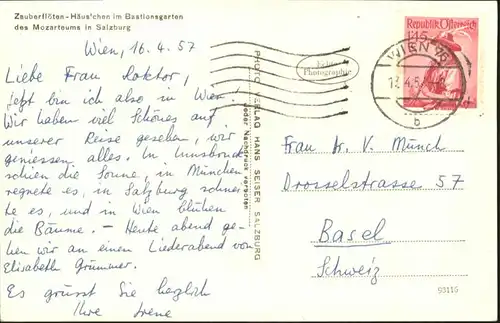 Zauberflöten-Häus'chen im Bastionsgarten
des Mozarteums in Salzburg
Wien, 16. 4. 57
Liebe Frau Doktor,
jetzt bin ich also in Wien!
Wir haben viel Schönes auf
unserer Reise gesehen, wir
geniessen alles. In Innsbruck
schien die Sonne, in München
regnete es, in Salzburg schnei-
te es, und in Wien blühen
die Bäume. – Heute abend ge-
hen wir an einen Liederabend von
Elisabeth Grümmer.
Es grüsst Sie herzlich
Ihre Irene
PHOTO-VERLAG HANS SEISER SALZBURG
Jeder Nachdruck verboten
Echte
Photographie
Republik Österreich
1.45
WIEN
b
Frau Dr. V. Münch
Drosselstrasse 57
Basel
Schweiz
93116